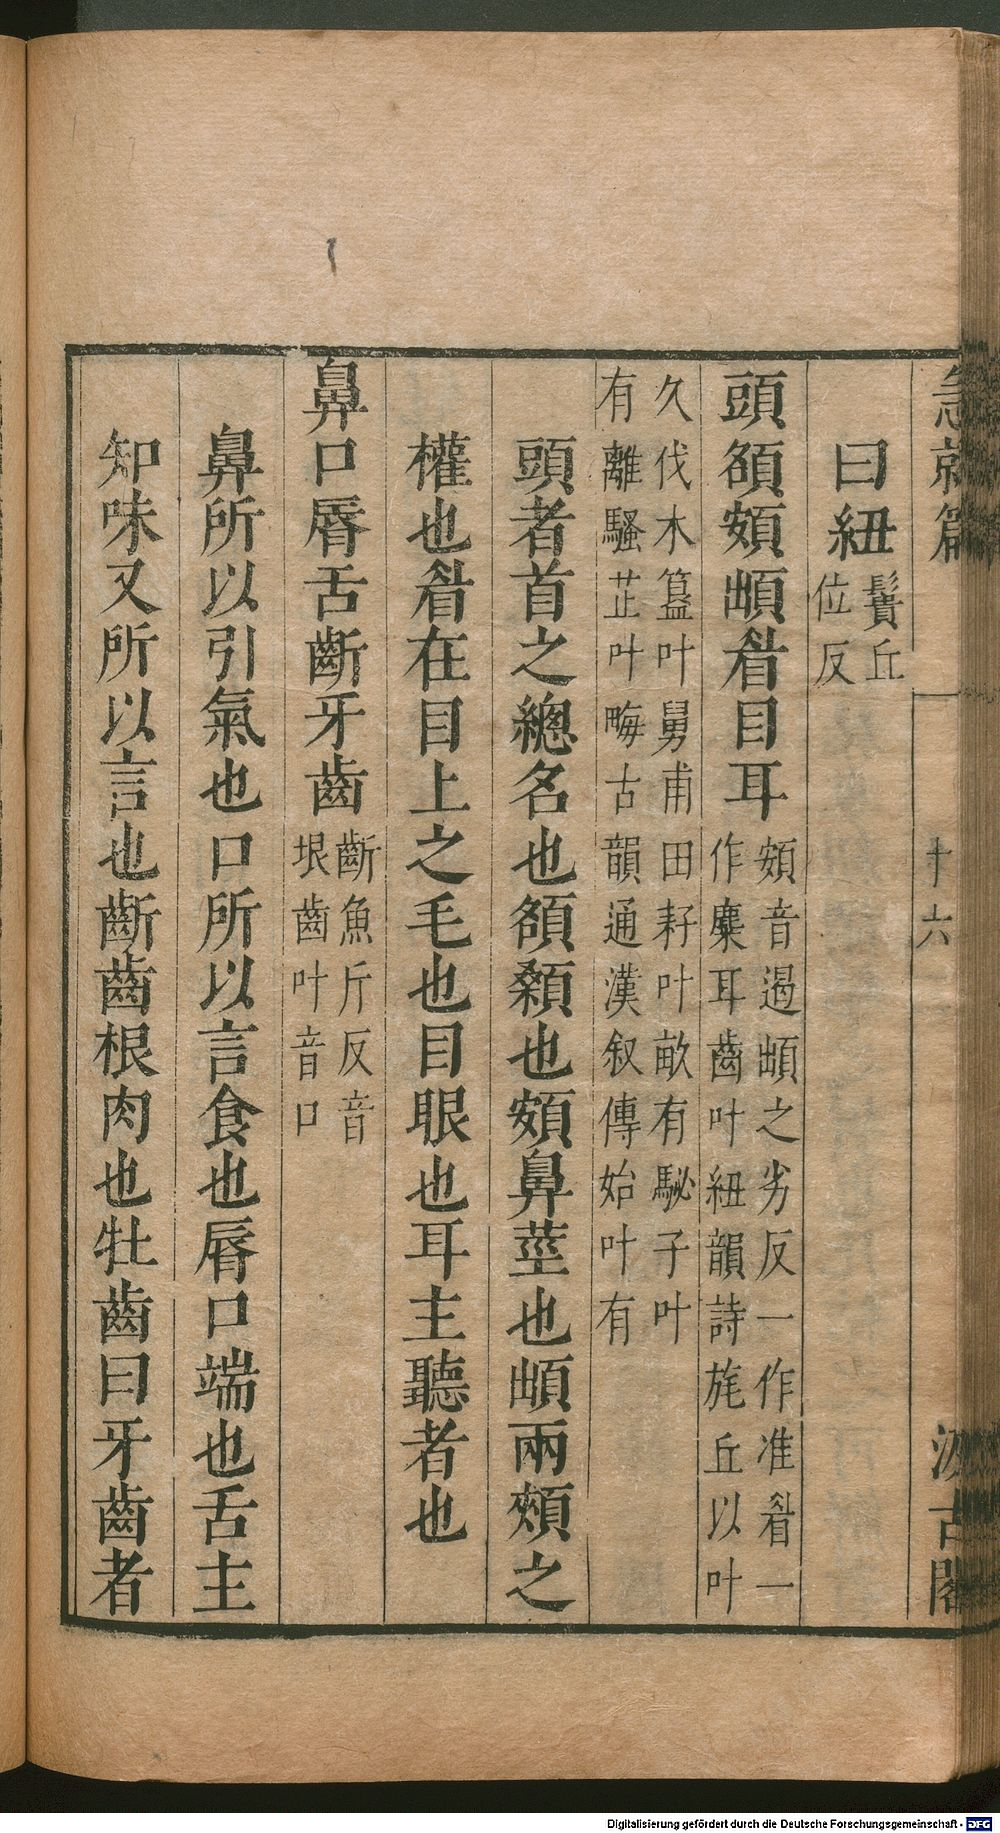 急就篇
十六
汲古閣
曰紐䰎丘
位反
頭頟頞䪼睂目耳頞音遏䪼之劣反一作准睂一
作麋耳齒叶紐韻詩旄丘以叶
久伐木簋叶舅甫田耔叶畝有駜子叶
有離騷芷叶畮古韻通漢叙傳始叶有
頭者首之總名也頟顙也頞鼻莖也䪼兩頰之
權也睂在目上之毛也目眼也耳主聽者也
鼻口脣舌齗牙齒齗魚斤反音
垠齒叶音口
鼻所以引氣也口所以言食也脣口端也舌主
知味又所以言也齗齒根肉也牡齒曰牙齒者
Digitalisierung gefördert durch die Deutsche Forschungsgemeinschaft - DFG